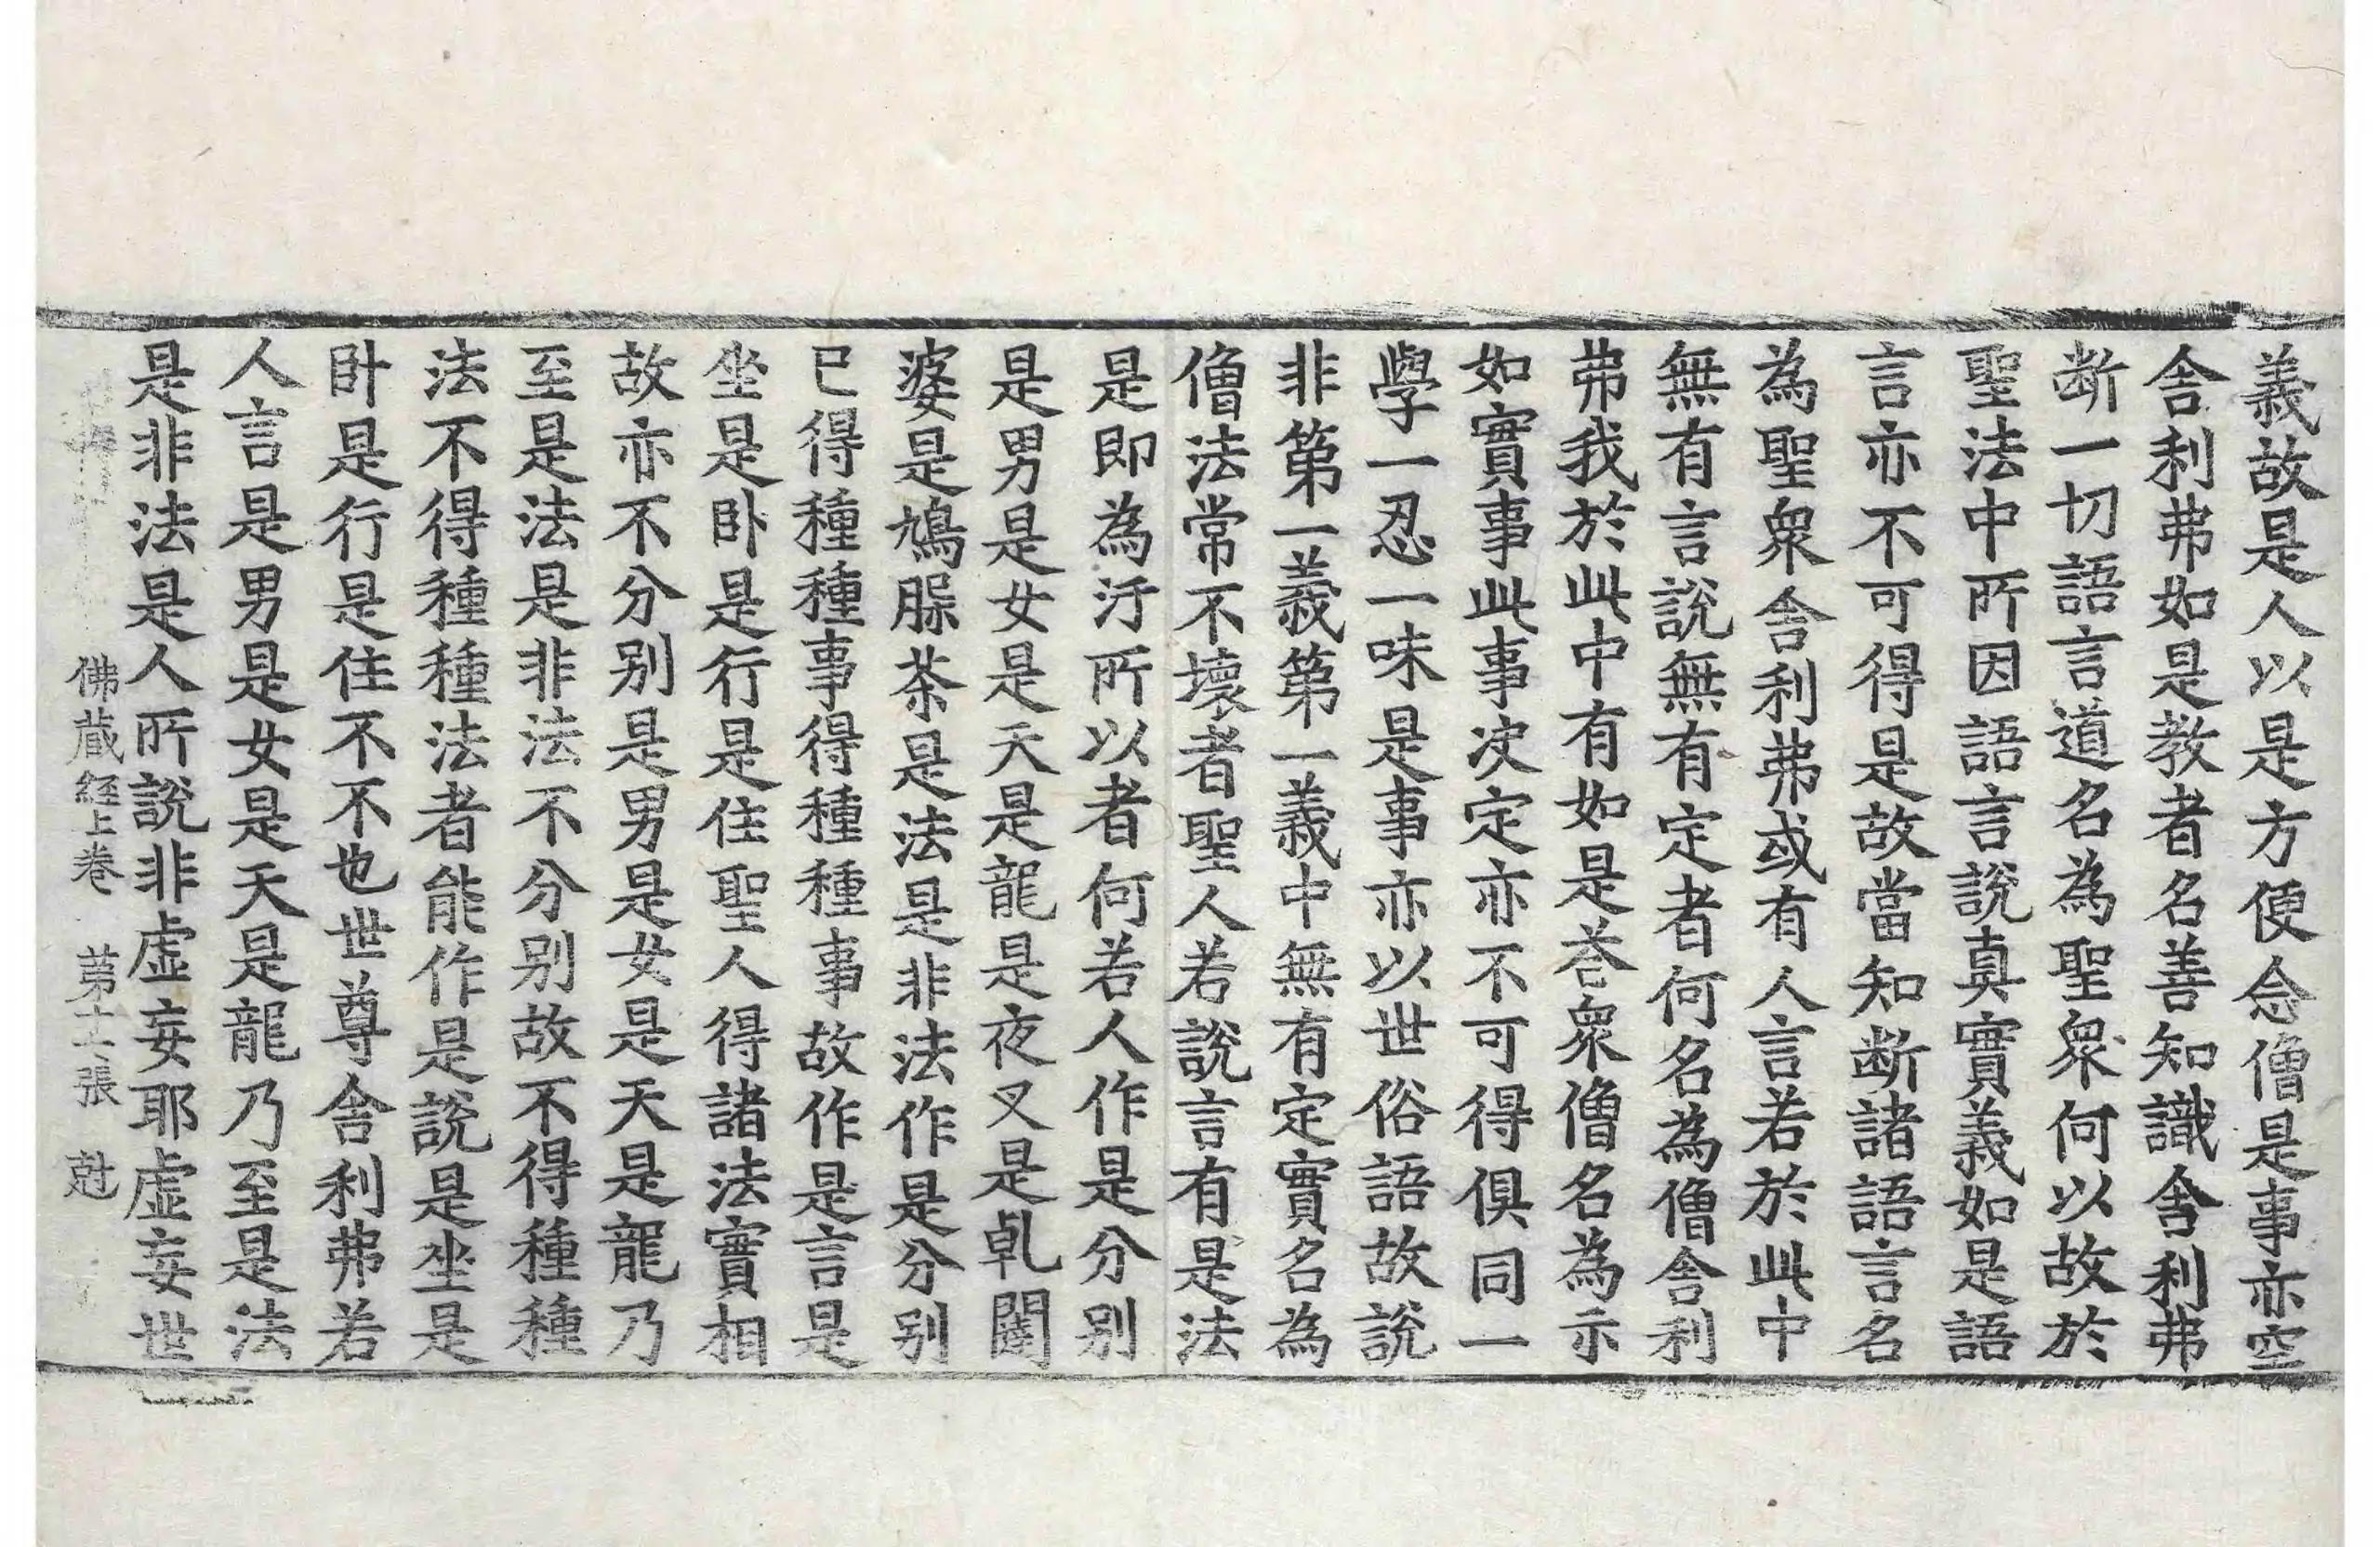 義故是人以是方便念僧是事亦空
舍利弗如是教者名善知識舍利弗
断一切語言道名為聖衆何以故於
聖法中所因語言說真實義如是語
言亦不可得是故當知断諸語言名
為聖衆舍利弗或有人言若於此中
無有言說無有定者何名為僧舍利
弗我於此中有如是荅衆僧名為示
如實事此事决定亦不可得俱同一
學一忍一味是事亦以世俗語故說
非第一義第一義中無有定實名為
僧法常不壞者聖人若說言有是法
是即為汙所以者何若人作是分別
是男是女是天是龍是夜叉是乹闥
婆是鳩脲茶是法是非法作是分别
已得種種事得種種事故作是言是
坐是卧是行是住聖人得諸法實相
故亦不分别是男是女是天是龍乃
至是法是非法不分别故不得種種
法不得種種法者能作是說是坐是
卧是行是住不不也世尊舍利弗若
人言是男是女是天是龍乃至是法
是非法是人所說非虛妄耶虛妄世
佛蔵経上卷 第十一張 尅